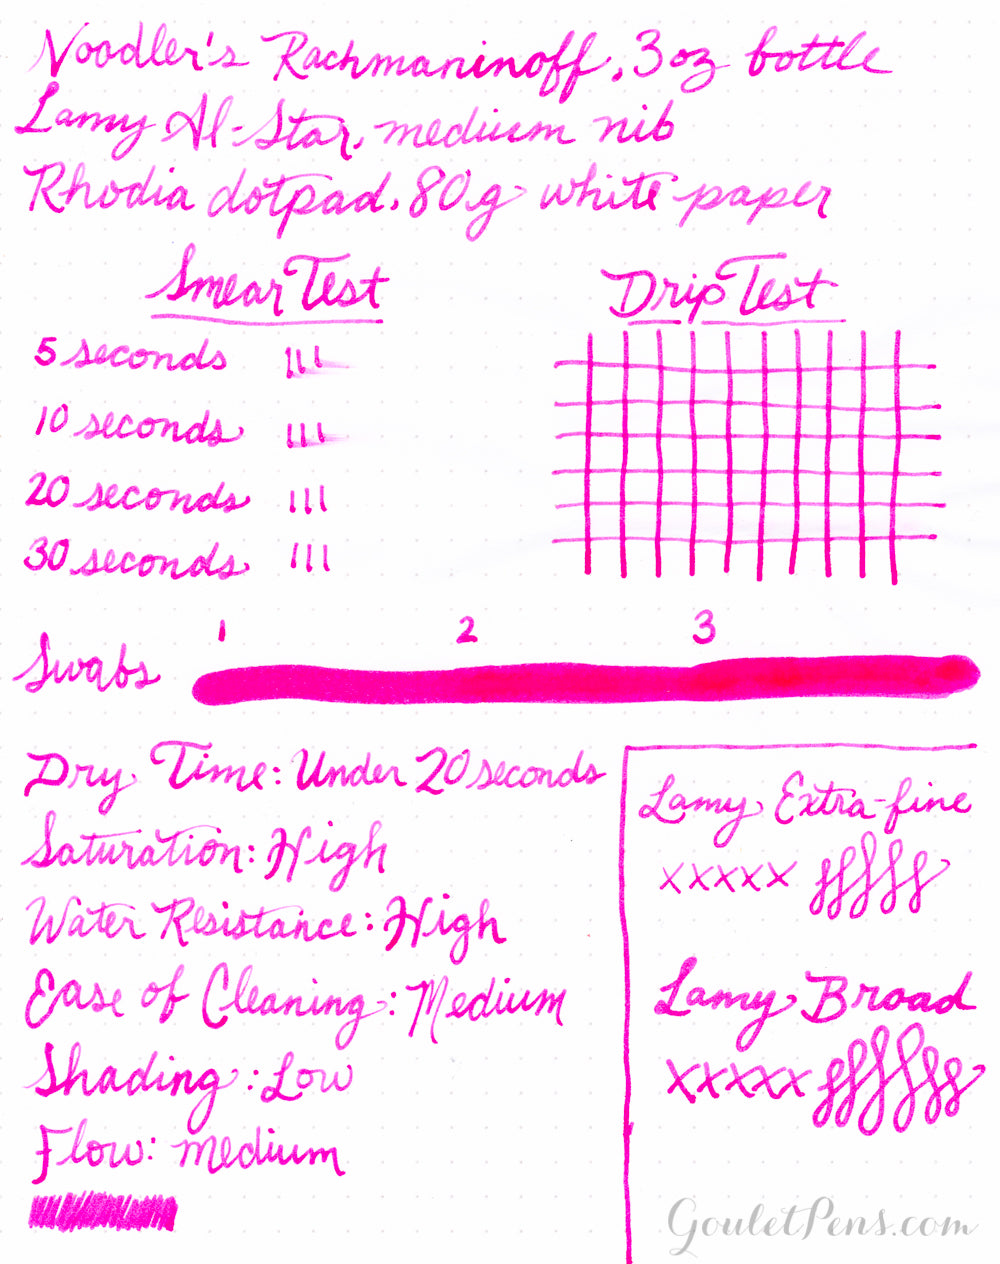 Noodler's Rachmaninoff, 3oz bottle
Lamy Al-Star, medium nib
Rhodia dotpad, 80g white paper
Smear Test
5 seconds
10 seconds
20 seconds
30 seconds
Drip Test
1 2 3
Swabs
Dry Time: Under 20 seconds
Saturation: High
Water Resistance: High
Ease of Cleaning: Medium
Shading: Low
Flow: medium
Lamy Extra-fine
xxxxx
Lamy Broad
xxxxx
GouletPens.com